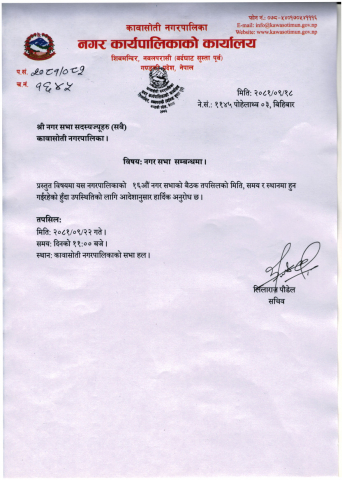 कावासोती नगरपालिका
नगर कार्यपालिकाको कार्यालय
शिवमन्दिर, नवलपरासी (बर्दघाट सुस्ता पूर्व)
गण्डकी प्रदेश, नेपाल
E-mail: info@kawasotimun.gov.np
Website: www.kawasotimun.gov.np
प.सं. २०८१/०८२
च.नं. १६४५
मिति: २०८१/०९/१८
ने.सं.: ११४५ पोहेलाथ्व ०३, बिहिबार
श्री नगर सभा सदस्यज्यूहरु (सबै)
कावासोती नगरपालिका।
विषय: नगर सभा सम्बन्धमा।
प्रस्तुत विषयमा यस नगरपालिकाको १६औं नगर सभाको बैठक तपसिलको मिति, समय र स्थानमा हुन
गईरहेको हुँदा उपस्थितिको लागि आदेशानुसार हार्दिक अनुरोध छ।
तपसिल:
मिति: २०८१/०९/२२ गते।
समय: दिनको ११:०० बजे।
स्थान: कावासोती नगरपालिकाको सभा हल।
लिलाराज पौडेल
सचिव